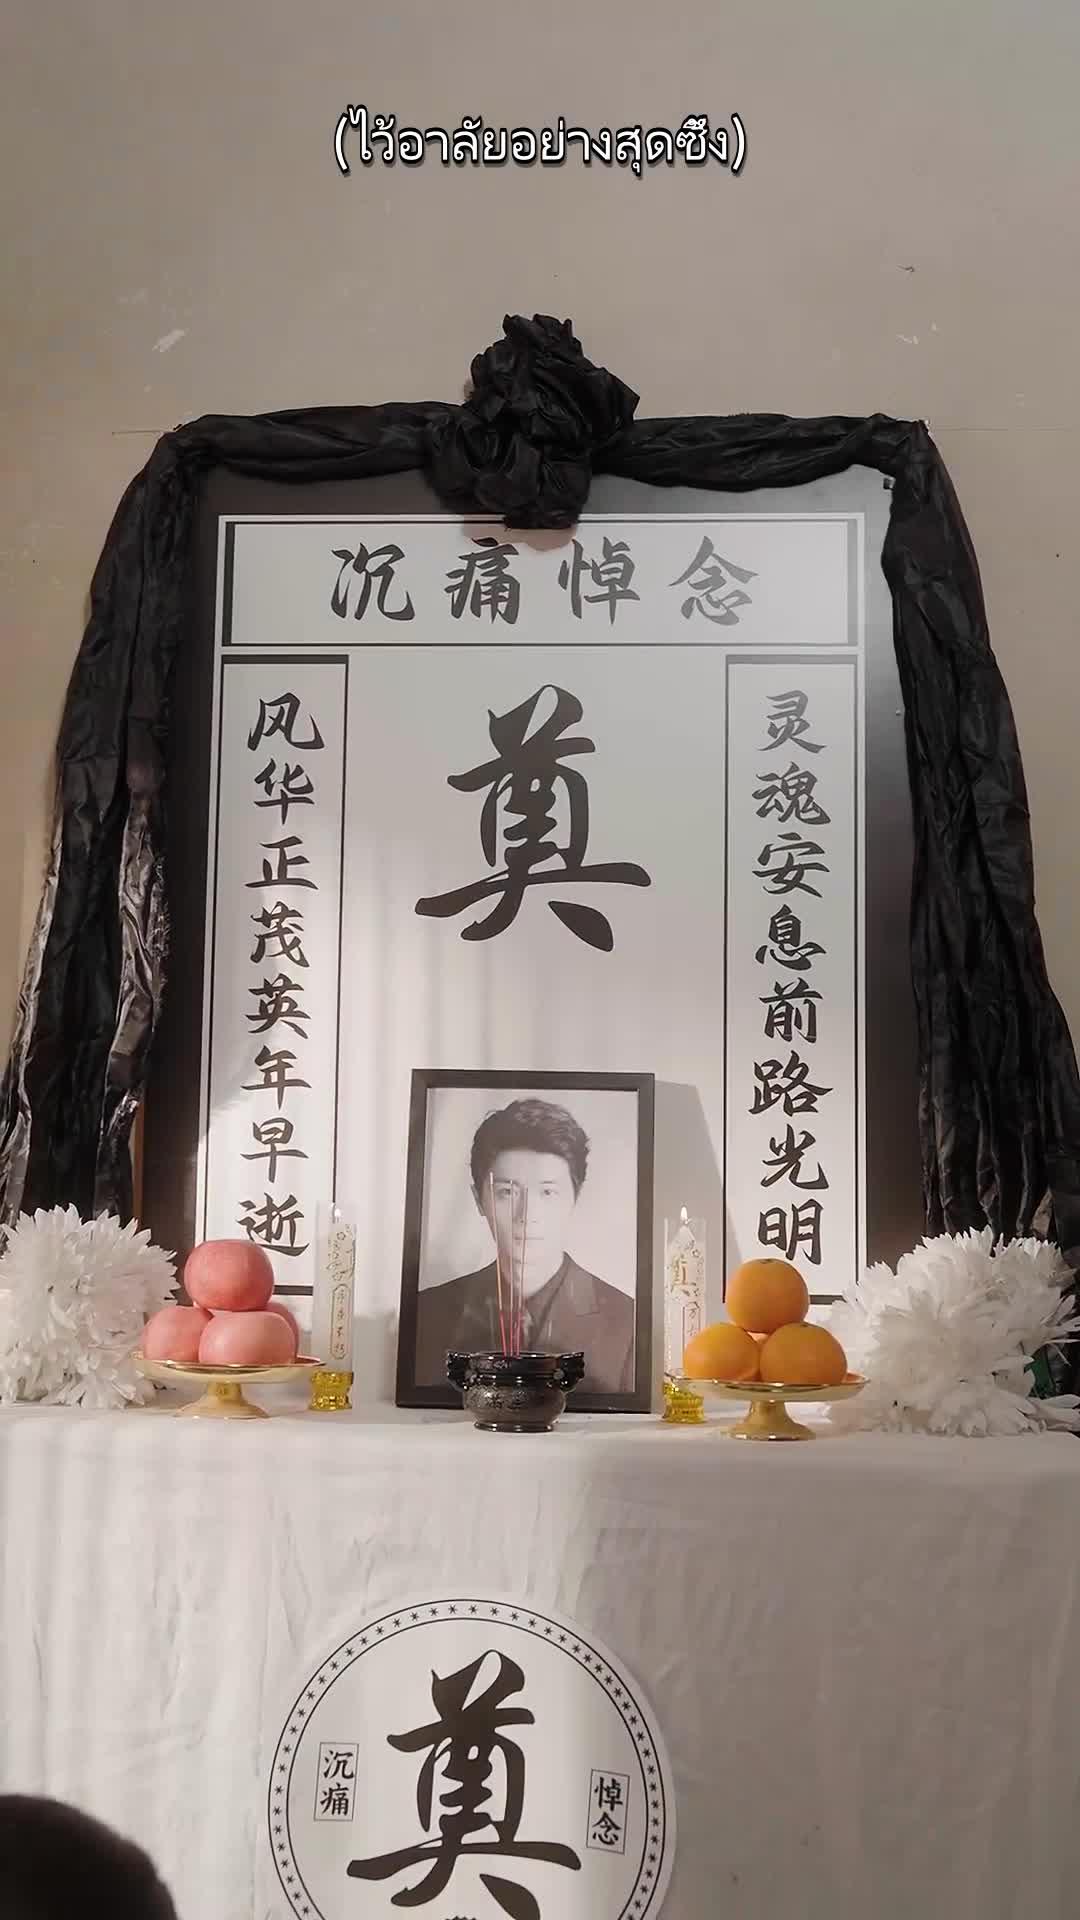 (ไว้อาลัยอย่างสุดซึ้ง)
沉痛悼念
奠
风华正茂英年早逝
灵魂安息前路光明
奠
沉痛
悼念